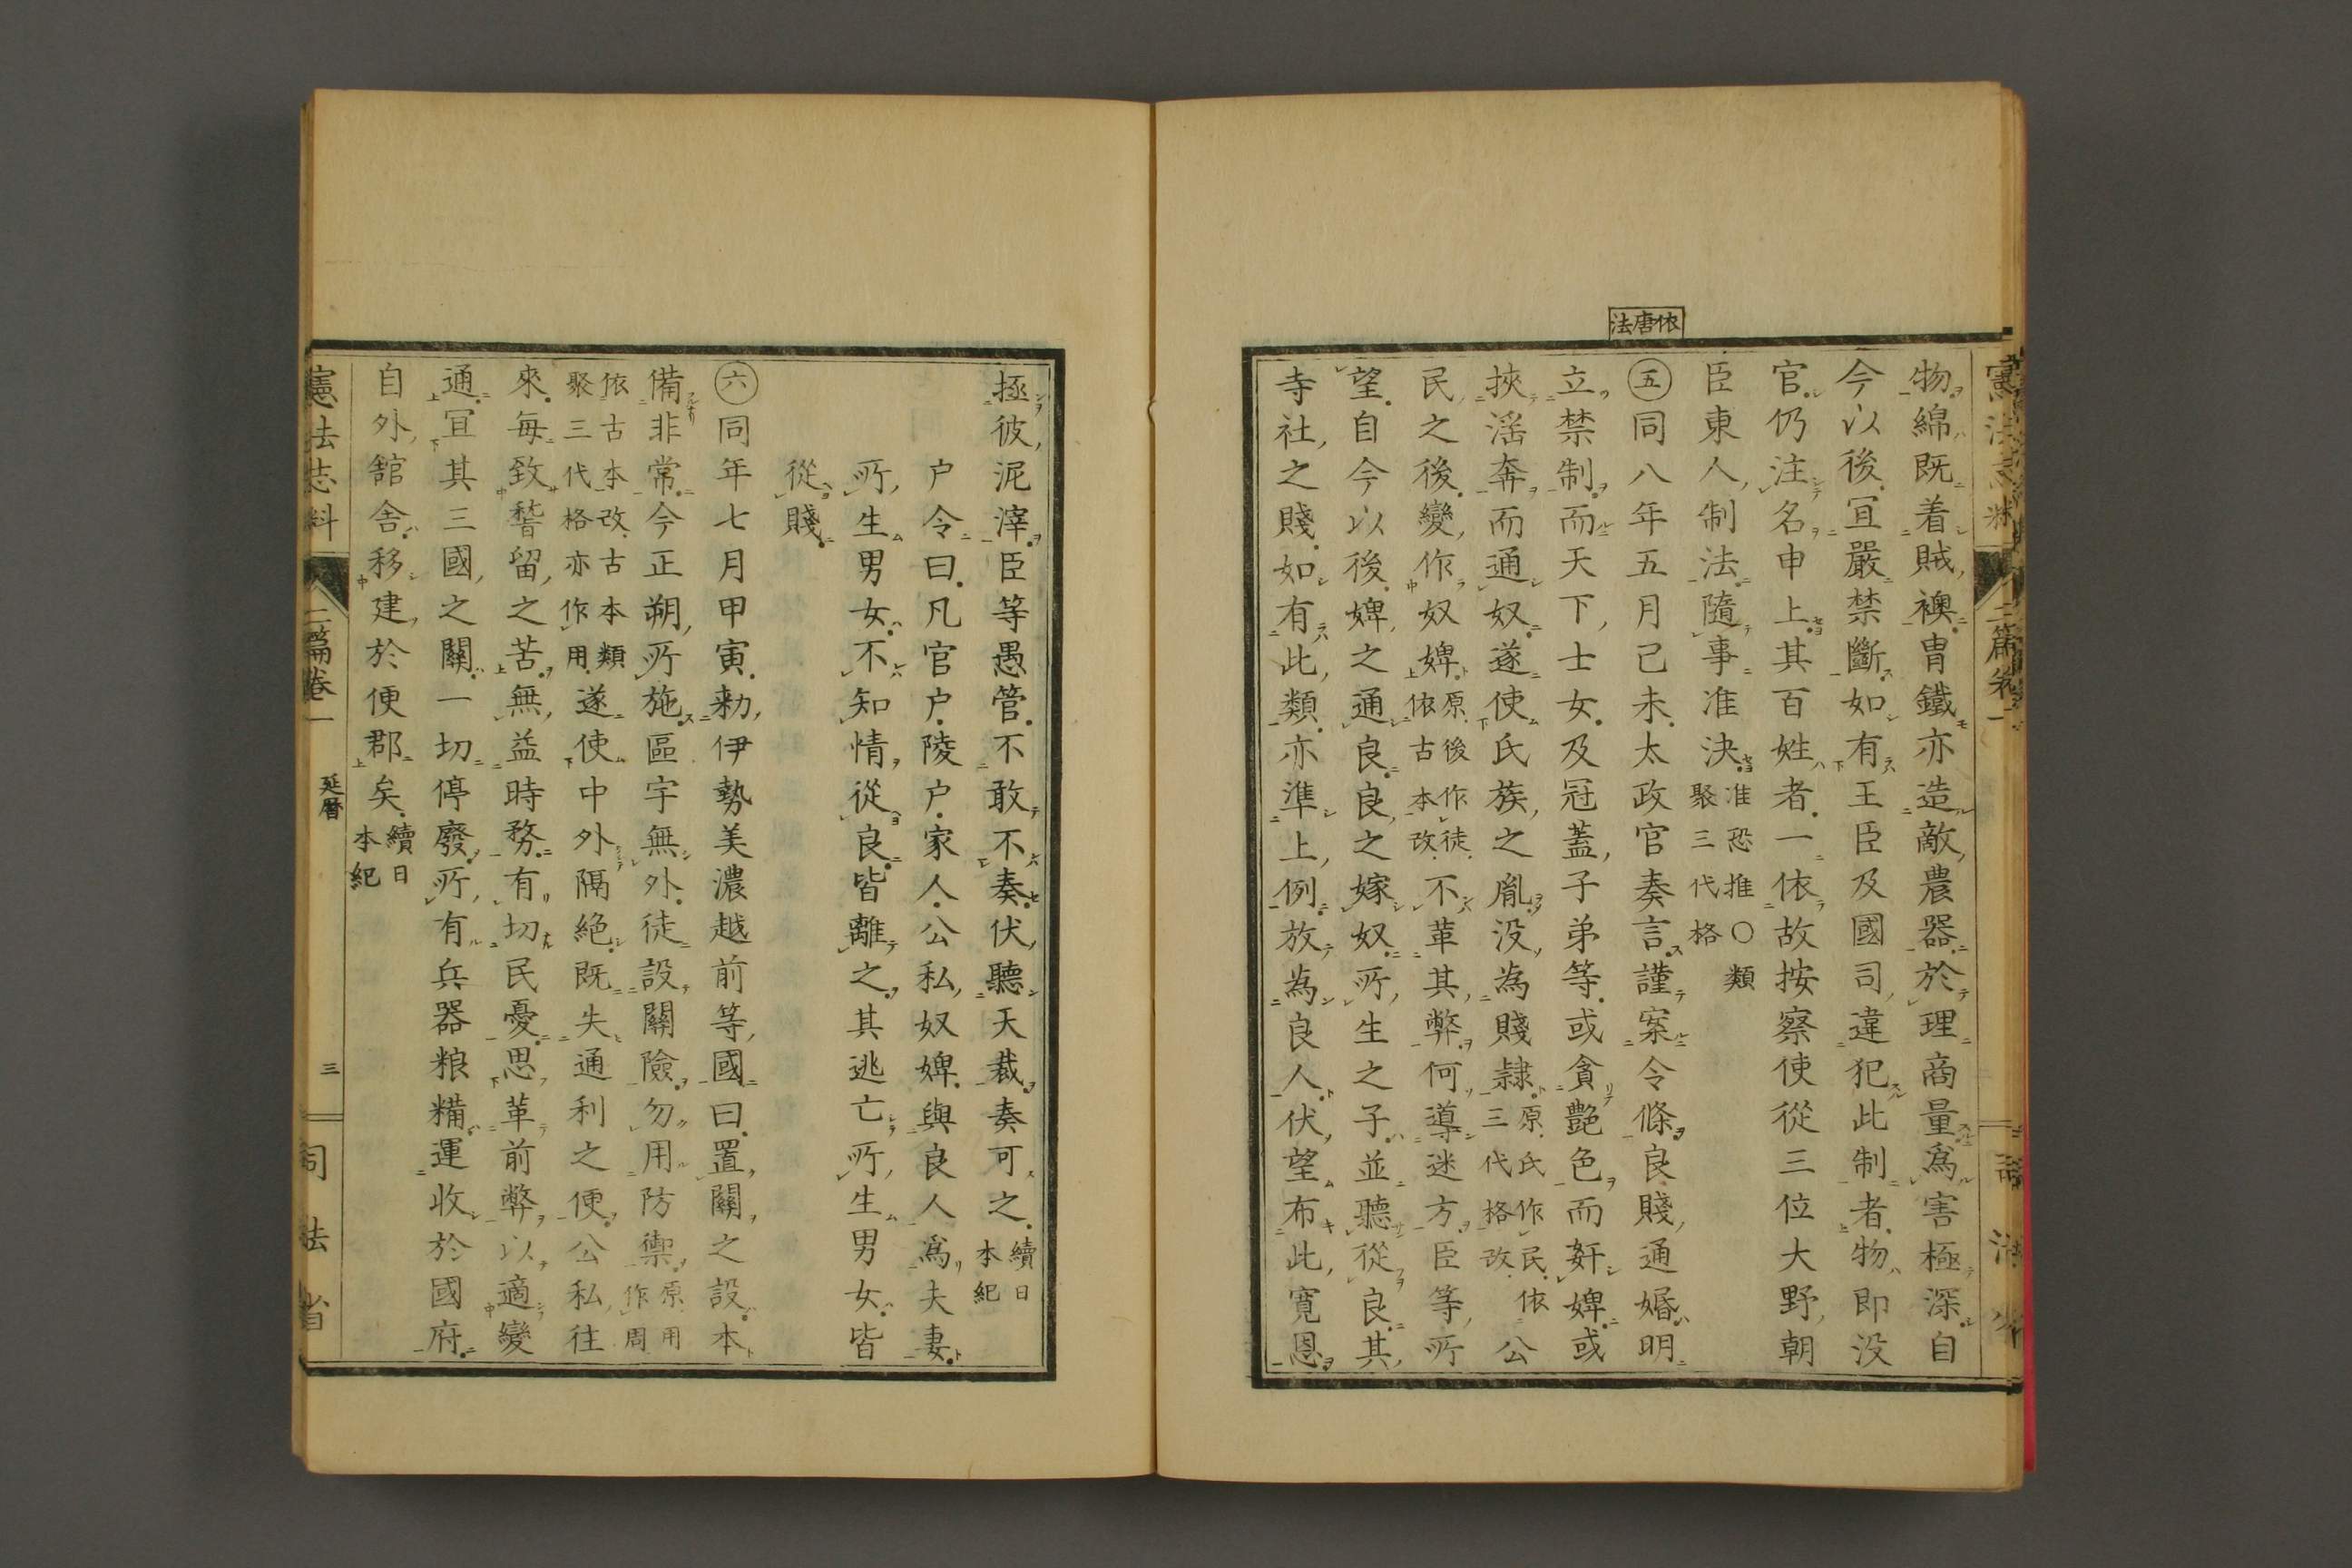 依唐法
物綿既着賊襖冑鐵亦造敵農器於理商量爲害極深自
今以後宜嚴禁斷如有王臣及國司違犯此制者物即没
官仍注名申上其百姓者一依故按察使從三位大野朝
臣東人制法隨事准決准恐推〇類聚三代格
㊄同八年五月己未太政官奏言謹案令條良賤通婚明
立禁制而天下士女及冠蓋子弟等或貪艷色而奸婢或
挾淫奔而通奴遂使氏族之胤没為賤隷原氏作民依三代格改公
民之後變作奴婢原後作徒依古本改不革其弊何導迷方臣等所
望自今以後婢之通良良之嫁奴所生之子並聽從良其
寺社之賤如有此類亦準上例放為良人伏望布此寛恩
拯彼泥滓臣等愚管不敢不奏伏聽天裁奏可之續日本紀
户令曰凡官户陵户家人公私奴婢與良人爲夫妻
所生男女不知情從良皆離之其逃亡所生男女皆
從賤
㊅同年七月甲寅勅伊勢美濃越前等國曰置關之設本
備非常今正朔所施區宇無外徒設關險勿用防禦原用作周
依古本改古本類聚三代格亦作用遂使中外隔絶既失通利之便公私往
來毎致稽留之苦無益時務有切民憂思革前弊以適變
通宜其三國之關一切停廢所有兵器粮糒運收於國府
自外舘舎移建於便郡矣續日本紀
憲法志料
二篇卷一
延曆
三
司法省